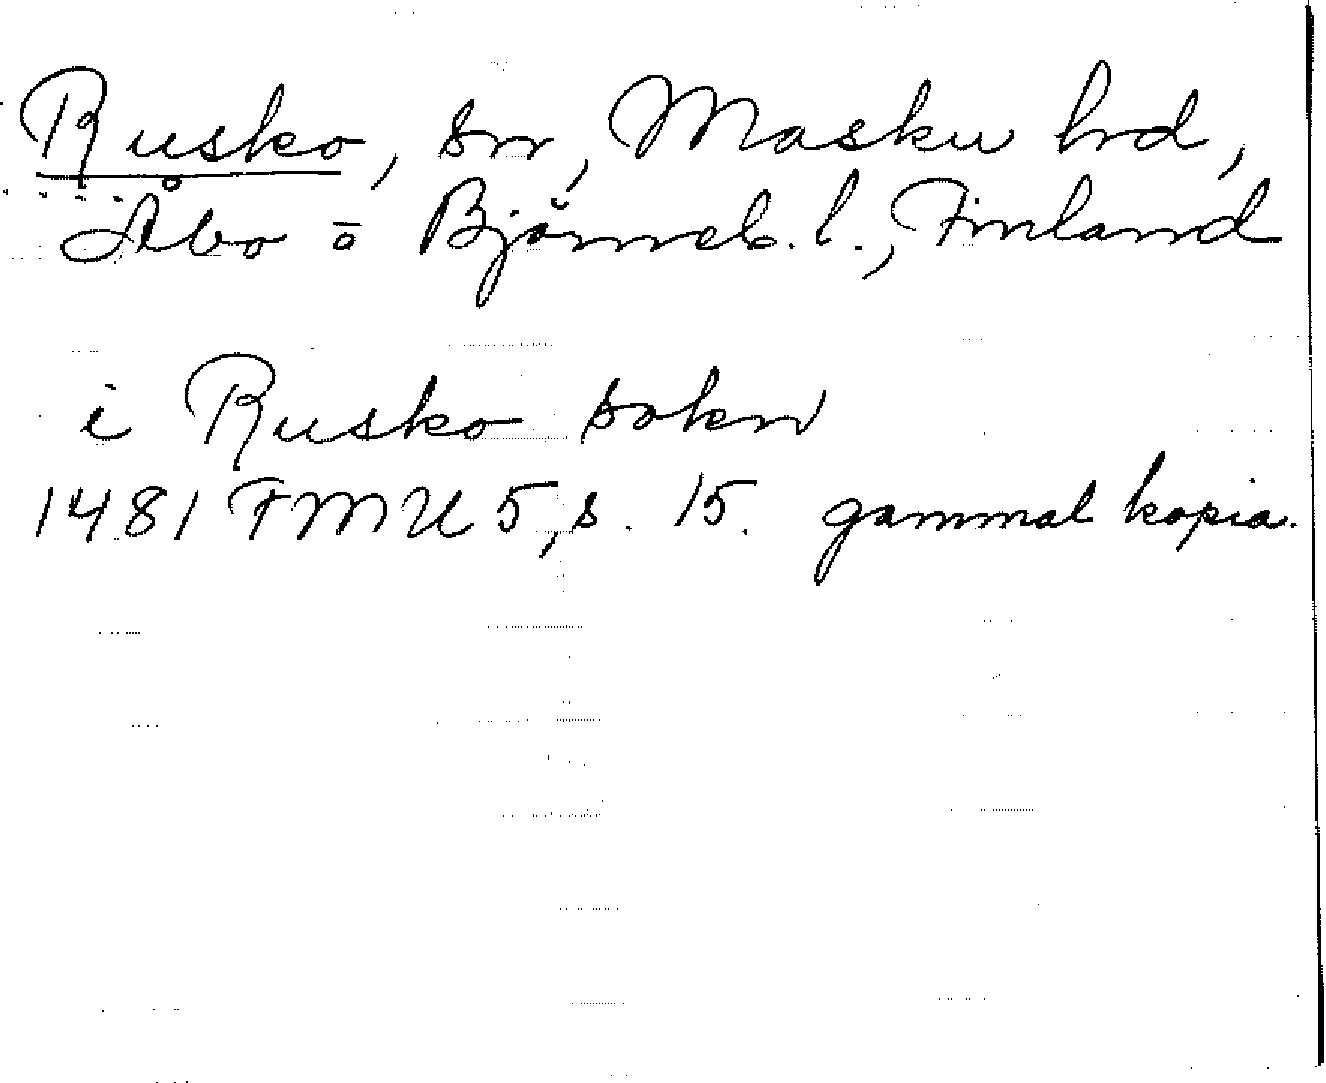 Rusko, sn, Masku hd,
Åbo o Björneb. l., Finland
i Rusko sokn
1481 FMU 5, s. 15. gammal kopia.